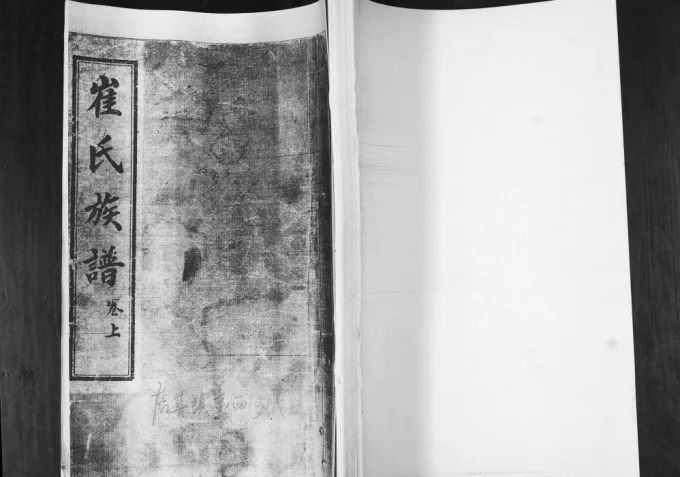 崔氏族譜
卷上